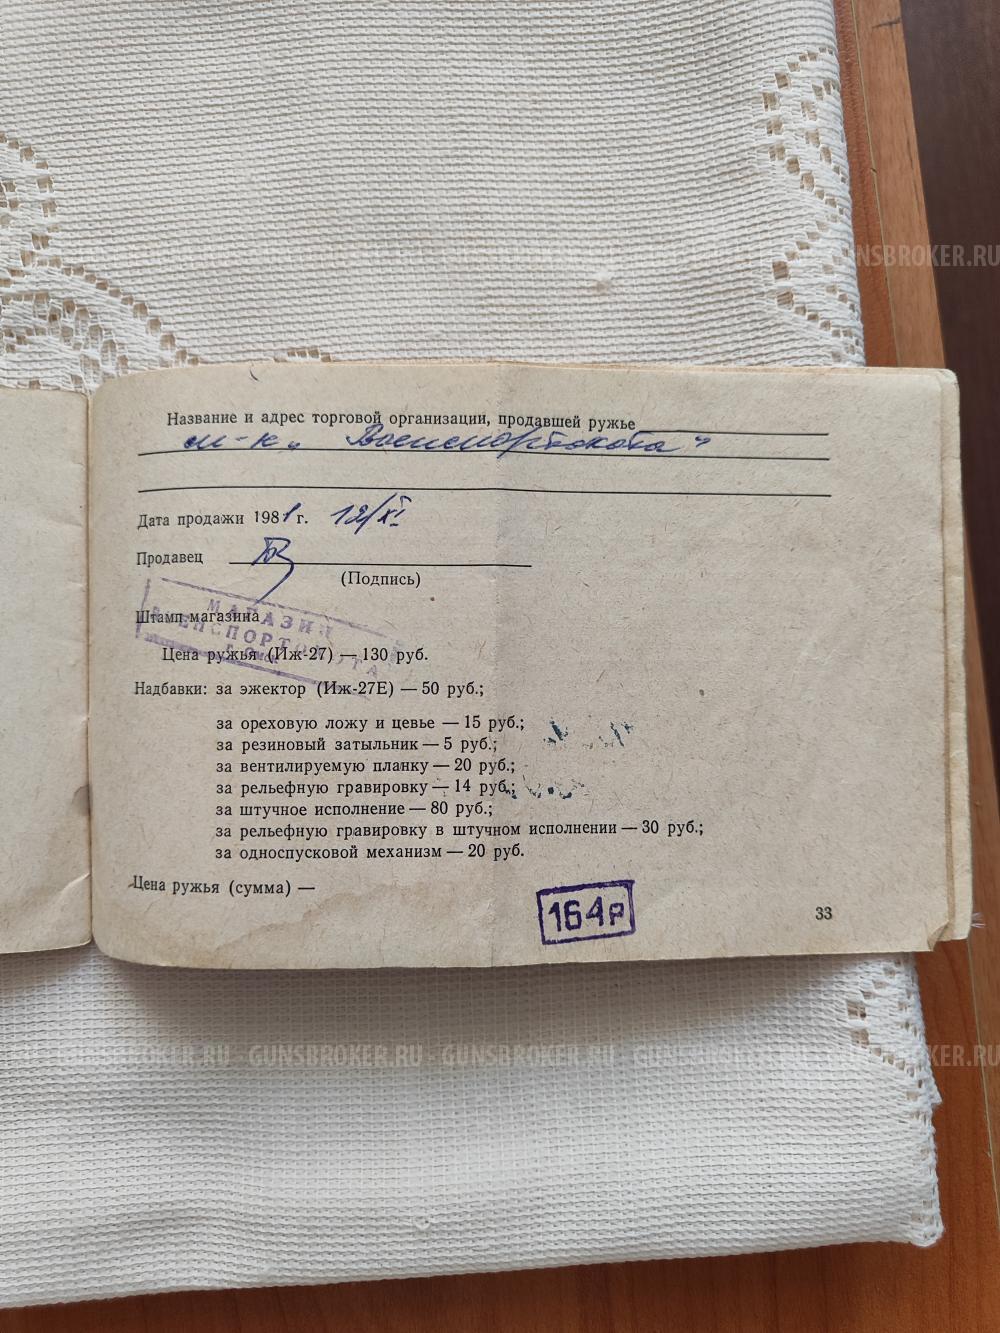 NSBROKER.RU
Название и адрес торговой организации, продавшей ружье
м-н „Военспортохота"
Дата продажи 1981 г. 12/XI
Продавец
(Подпись)
Штамп магазина
МАГАЗИН
ВОЕНСПОРТОХОТА
Цена ружья (Иж-27) — 130 руб.
Надбавки: за эжектор (Иж-27Е) — 50 руб.;
за ореховую ложу и цевье — 15 руб.;
за резиновый затыльник — 5 руб.;
за вентилируемую планку — 20 руб.;
за рельефную гравировку — 14 руб.;
за штучное исполнение — 80 руб.;
за рельефную гравировку в штучном исполнении — 30 руб.;
за односпусковой механизм — 20 руб.
Цена ружья (сумма) —
164р
33
GUNSBROKER.RU - GUNSBROKER.RU - GUNSBROKER.RU